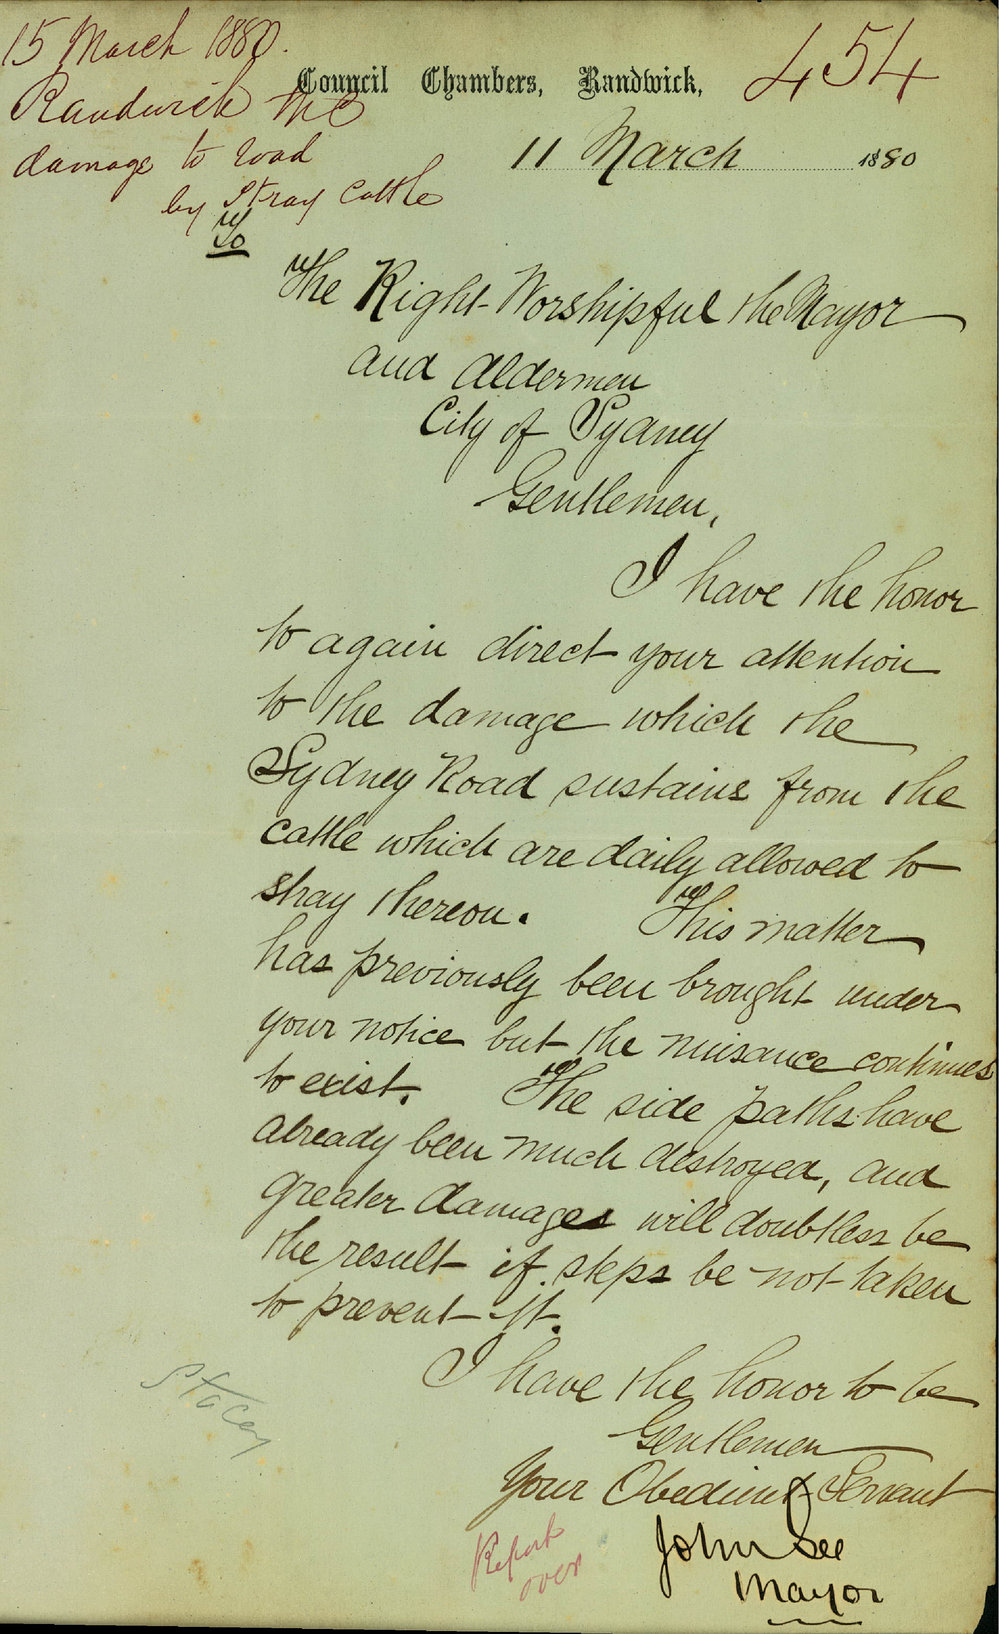 15 March 1880.
Randwick MC
damage to road
by Stray Cattle
454
Council Chambers, Randwick,
11 March 1880
To
The Right Worshipful the Mayor
and Aldermen
City of Sydney
Gentlemen,
I have the honor
to again direct your attention
to the damage which the
Sydney Road sustains from the
cattle which are daily allowed to
stray thereon. This matter
has previously been brought under
your notice but the nuisance continues
to exist. The side paths have
already been much destroyed, and
greater damages will doubtless be
the result if steps be not taken
to prevent it.
I have the honor to be
Gentlemen
Your Obedient Servant
John See
Mayor
Stacey
Report
over